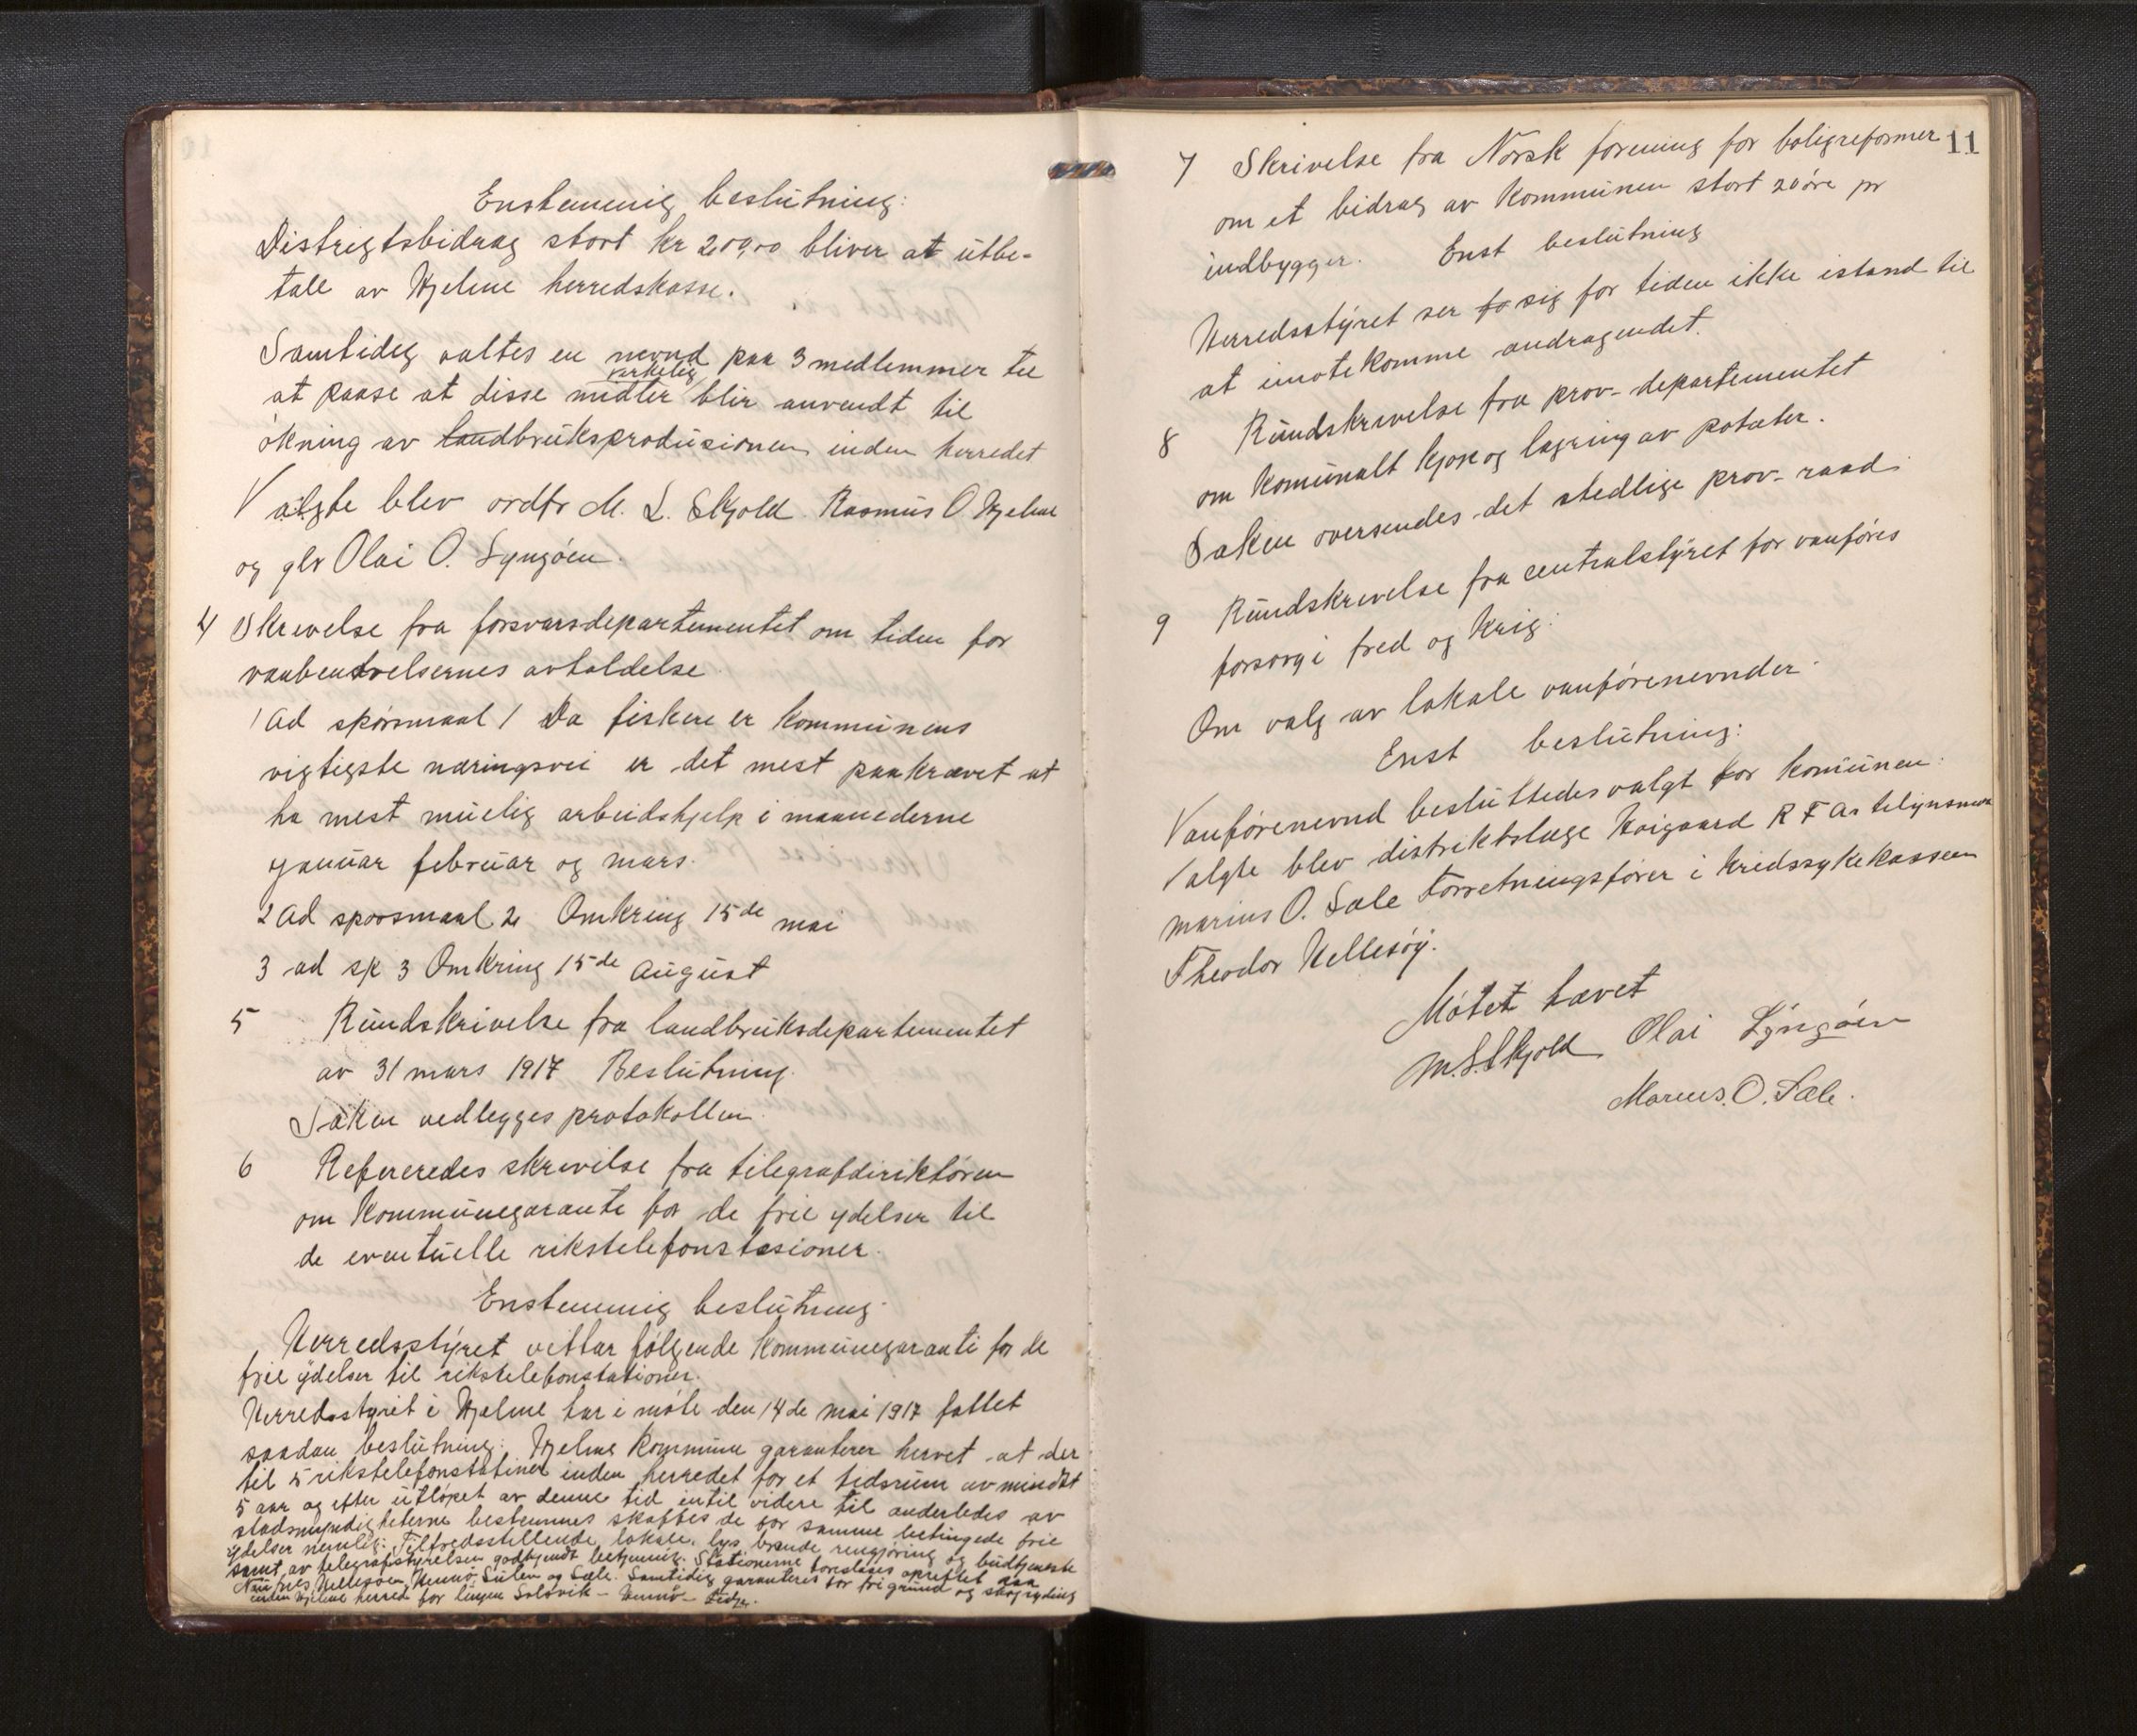 Enstemmig beslutning:
Distrigtsbidrag stort kr 200,00 bliver at utbe-
tale av Hjelme herredskasse.
Samtidig valtes en nevnd paa 3 medlemmer til
at paase at disse midler virkelig blir anvendt til
økning av landbruksprodusionen inden herredet
Valgte blev ordfr M. L. Skjold. Rasmus O Hjelme
og glr Olai O. Lyngøen.
4 Skrivelse fra forsvarsdepartementet om tiden for
vaabenøvelsernes avholdelse
1 Ad spørsmaal 1 Da fiskere er kommunens
vigtigste næringsvei er det mest paakrævet at
ha mest muelig arbeidshjelp i maanederne
januar februar og mars.
2 Ad sporsmaal 2 Omkring 15de mai
3 ad sp 3 Omkring 15de August
5 Rundskrivelse fra landbruksdepartementet
av 31 mars 1917 Beslutning.
Saken vedlegges protokollen.
6 Refereredes skrivelse fra telegrafdirektøren
om kommunegarante for de frie ydelser til
de eventuelle rikstelefonstasioner.
Enstemmig beslutning.
Herredsstyret vettar følgende kommunegaranti for de
frie ydelser til rikstelefonstationer.
Herredsstyret i Hjelme har i møte den 14de mai 1917 fattet
saadan beslutning: Hjelme kommune garanterer hervet at der
til 5 rikstelefonstatiner inden herredet for et tidsrum av mindst
5 aar og efter utløpet av denne tid intil videre til anderledes av
stadsmyndigheterne bestemmes skaffes de for samme betingede frie
ydelser nemlig: Tilfredsstillende lokale, lys brænde rengjøring og budtjeneste
samt av telegrafstyrelsen godkjendt betjening. Stationerne foreslaaes oprettet paa
Hellesøen, Hernø, Sulen og Sæle. Samtidig garanteres for fri grund og skogrydning
inden Hjelme herred for linjen Solsvik – Hernø – Fedje.
11
7 Skrivelse fra Norsk forening for boligreformer
om et bidrag av kommunen stort 20 øre pr
indbygger. Enst beslutning
Herredsstyret ser fo sig for tiden ikke istand til
at imøtekomme andragendet.
8 Rundskrivelse fra prov-departementet
om komunalt kjøp og lagring av poteter.
Saken oversendes det stedlige prov-raad.
9 Rundskrivelse fra centralstyret for vanføres
forsorg i fred og krig.
Om valg av lokale vanførenevnder.
Enst beslutning:
Vanførenevnd besluttedes valgt for komunen.
Valgte blev distriktslæge Hoigaard R F As telynsnes
marius O. Sæle Forretningsfører i kredssykekassen
Theodor Hellesøy.
Møtet hævet
M. L. Skjold Olai Lyngøen
Marius. O. Sæle.